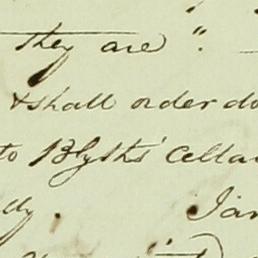 they are".
& shall order do
to Blyths' Cella
dy. Jan